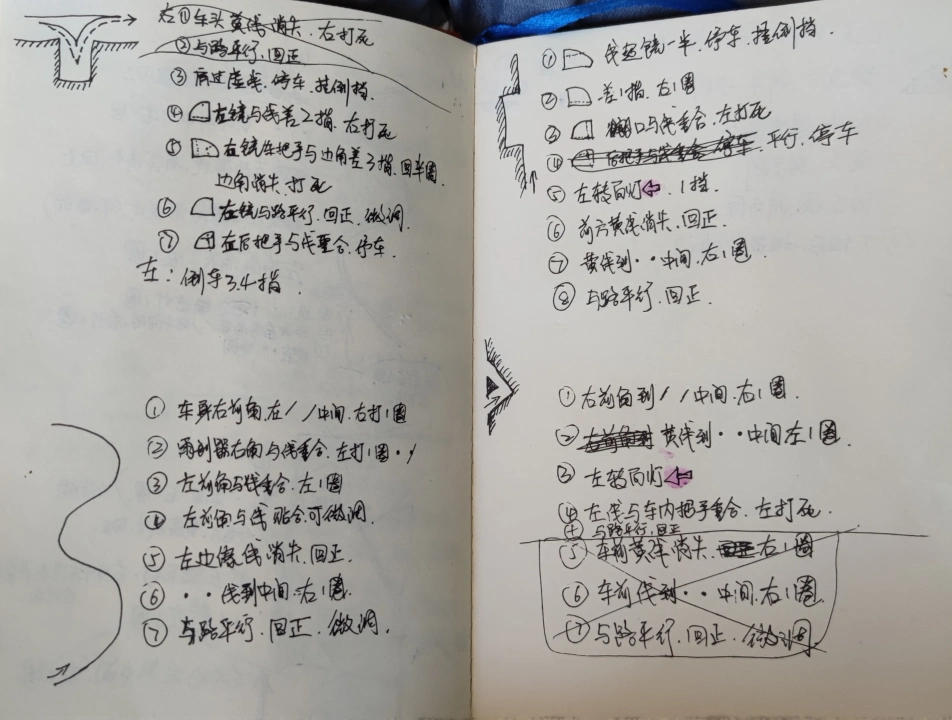 右①车头黄线消失.右打死
②与路平行.回正
③肩过虚线.停车.挂倒挡.
④左镜与线差2指.右打死
⑤右镜在把手与边角差3指.回半圈
边角消失.打死
⑥左镜与路平行.回正.微调.
⑦左后把手与线重合.停车.
左:倒车3.4指.
①车身右前角.在//中间.右打1圈
②雨刮器右角与线重合.左打1圈
③左前角与线重合.左1圈
④左前角与线贴合.可微调.
⑤左边缘线消失.回正.
⑥··线到中间.右1圈.
⑦与路平行.回正.微调.
①线起镜一半.停车.挂倒挡.
②差1指.左1圈
③口与线重合.左打死
④后把手与线重合停车.平行.停车
⑤左转向灯⇦.1挡.
⑥前方黄线消失.回正.
⑦黄线到··中间.右1圈.
⑧与路平行.回正.
①右前角到//中间.右1圈.
②右前角到黄线到··中间左1圈.
③左转向灯⇦
④左线与车内把手重合.左打死.
与路平行.回正
⑤车前黄线消失.右1圈
⑥车前线到··中间.右1圈.
⑦与路平行.回正.微调.